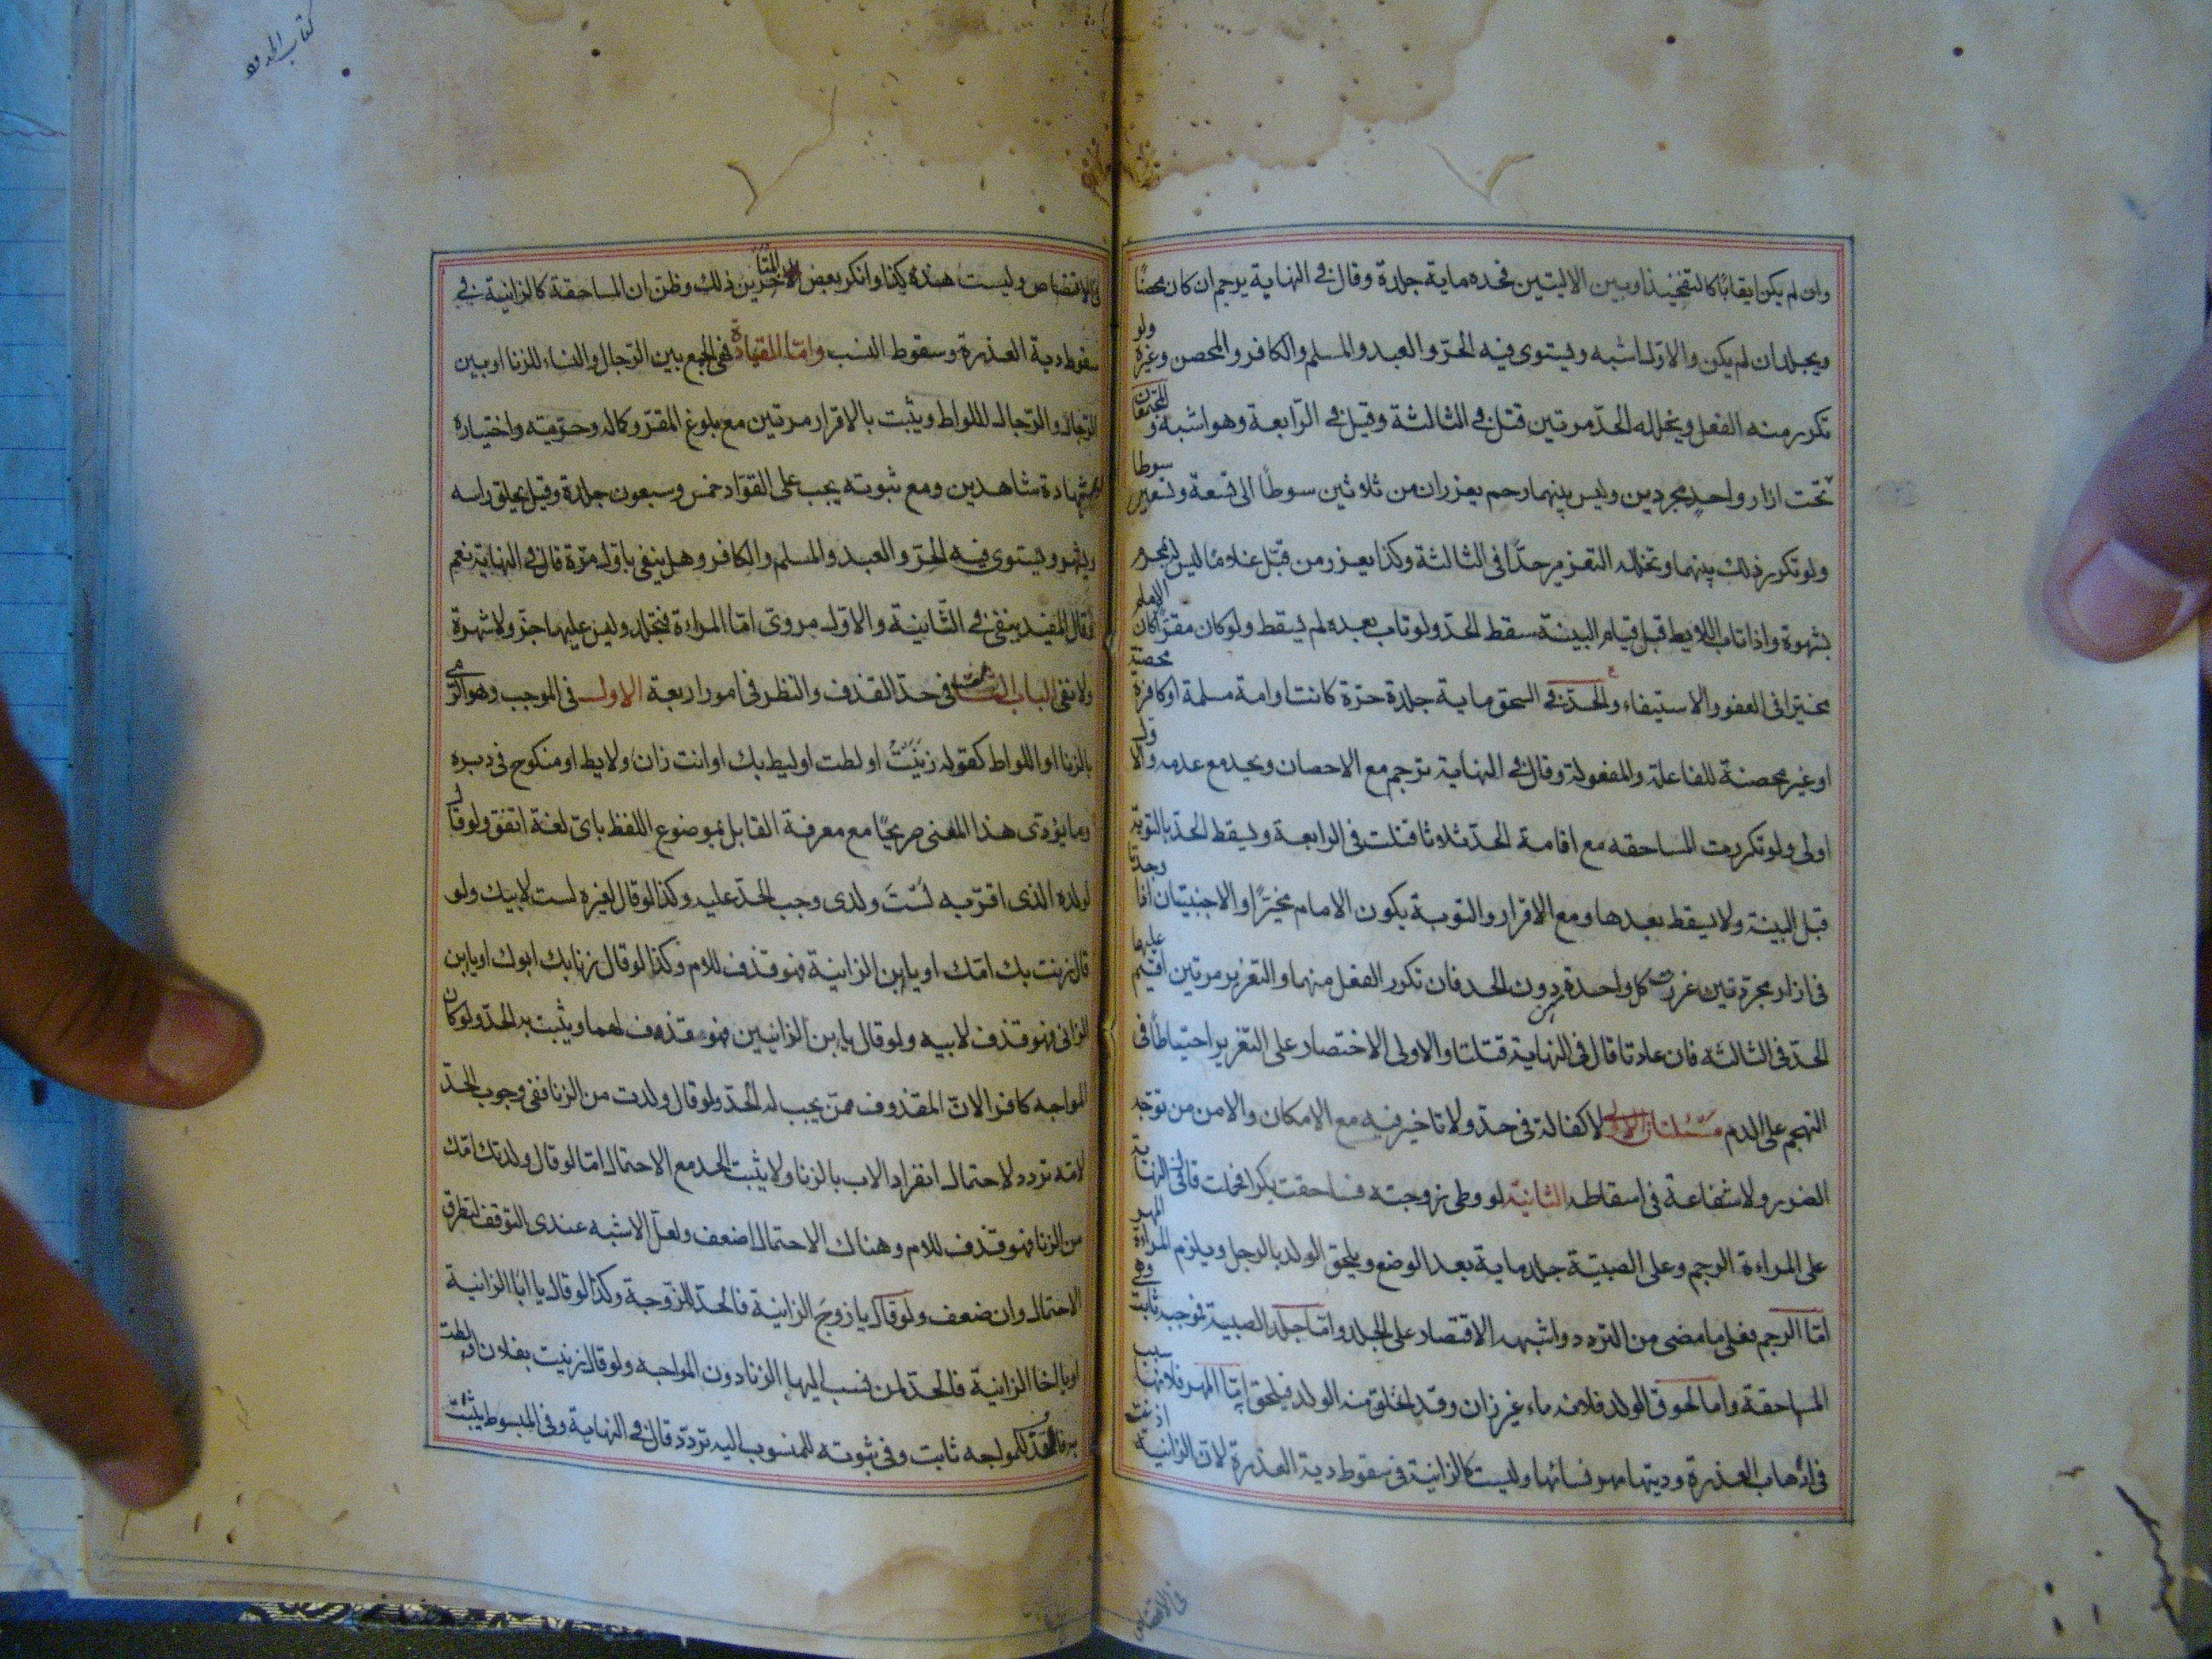 وان لم يكن ايقابًا كالتفخيذ او بين الاليتين فحده ماية جلدة وقال في النهاية يرجم ان كان محصنًا
ويجلد ان لم يكن والاول اشبه ويستوى فيه الحرّ والعبد والمسلم والكافر والمحصن وغيره ولو
تكرر منه الفعل وتخلله الحدّ مرتين قتل في الثالثة وقيل في الرّابعة وهو اشبه والمجتمعان
تحت ازار واحدٍ مجردين وليس بينهما رحم يعزران من ثلاثين سوطًا الى تسعة وتسعين سوطا
ولو تكرر ذلك بينهما وتخلله التعزير حدّا فى الثالثة وكذا يعزر من قبّل غلامًا ليس له بمحرم
بشهوة واذا تاب اللايط قبل قيام البينة سقط الحدّ ولو تاب بعده لم يسقط ولو كان مقرّا كان الامام
مخيّرا فى العفو والاستيفاء والحدّ في السحق ماية جلدة حرّة كانت او امة مسلمة او كافرة محصنة
او غير محصنة للفاعلة والمفعولة وقال في النهاية ترجم مع الاحصان ويحد مع عدمه والاول
اولى ولو تكررت المساحقه مع اقامة الحدّ ثلاثا قتلت فى الرابعة ويسقط الحدّ بالتوبة
قبل البينة ولا يسقط بعدها ومع الاقرار والتوبة يكون الامام مخيّرًا والاجنبيتان اذا وجدتا
فى ازار مجرّدتين عزرت كل واحدة دون الحد فان تكرر الفعل منهما والتعزير مرتين اقيم عليهما
الحدّ فى الثالثه فان عادتا قال فى النهاية قتلتا والاولى الاختصار على التعزير احتياطًا فى
التهجم على الدم مسئلتان الاولى لا كفالة فى حدّ ولا تاخير فيه مع الامكان والامن من توجه
الضرر ولا شفاعة فى اسقاطه الثانية لو وطى زوجته فساحقت بكرا فحملت قال فى النهاية
على المراءة الرجم وعلى الصبيّة جلد ماية بعد الوضع ويلحق الولد بالرجل ويلزم المراءة المهر
امّا الرجم فعلى ما مضى من التردد واشبهه الاقتصار على الجلد وامّا جلد الصبية فموجبه ثابت وهى
المساحقة واما لحوق الولد فلانه ماء غير زان وقد انخلق منه الولد فيلحق امّا المهر فلانها سبب
فى اذهاب العذرة وديتها مهر نسائها وليست كالزانية فى سقوط دية العذرة لانّ الزانية اذنت
فى الاقتضاض
كتاب الحدود
فى الاقتضاض وليست هذه كذا وانكر بعض المتاخرين ذلك وظن ان المساحقة كالزانية فى
سقوط دية العذرة وسقوط النسب وامّا القيادة فهى الجمع بين الرّجال والنساء للزنا او بين
الرّجال والرّجال للّواط ويثبت بالاقرار مرتين مع بلوغ المقرّ وكماله وحرّيته واختياره
او شهادة شاهدين ومع ثبوته يجب على القوّاد خمس وسبعون جلدة وقيل يحلق راسه
ويشهر ويستوى فيه الحرّ والعبد والمسلم والكافر وهل ينفى باوّل مرّة قال في النهاية نعم
وقال المفيد ينفى في الثّانية والاوّل مروى امّا المراءة فتجلد وليس عليها جزّ ولا شهرة
ولا نفى الباب الثالث فى حدّ القذف والنظر فى امور اربعة الاول فى الموجب وهو الرّمى
بالزنا او اللواط كقوله زنيتَ او لطت او ليط بك او انت زان ولايط او منكوح فى دبره
وما يؤدّى هذا المعنى صريحًا مع معرفة القايل بموضوع اللفظ باىّ لغة اتفق ولو قال
لولده الذى اقرّ به لَسْتَ ولدى وجب الحدّ عليه وكذا لو قال لغيره لست لابيك ولو
قال زنت بك امّك او يا ابن الزانية فهو قذف للام وكذا لو قال زنا بك ابوك او يا ابن
الزانى فهو قذف لابيه ولو قال يا ابن الزانيين فهو قذف لهما ويثبت به الحدّ ولو كان
المواجه كافرا لانّ المقذوف ممن يجب له الحدّ ولو قال ولدت من الزنا ففى وجوب الحدّ
لامّه تردد لاحتمال انفراد الاب بالزنا ولا يثبت الحد مع الاحتمال امّا لو قال ولدتك امّك
من الزنا فهو قذف للام وهناك الاحتمال اضعف ولعلّ الاشبه عندى التوقف لتطرق
الاحتمال وان ضعف ولو قال يا زوجَ الزانية فالحدّ للزوجة وكذا لو قال يا ابا الزانية
او يا اخا الزانية فالحدّ لمن نسب اليها الزنا دون المواجه ولو قال زنيت بفلان او لطت
به فالقذف للمواجه ثابت وفى ثبوته للمنسوب اليه تردّد قال في النهاية وفى المبسوط يثبت